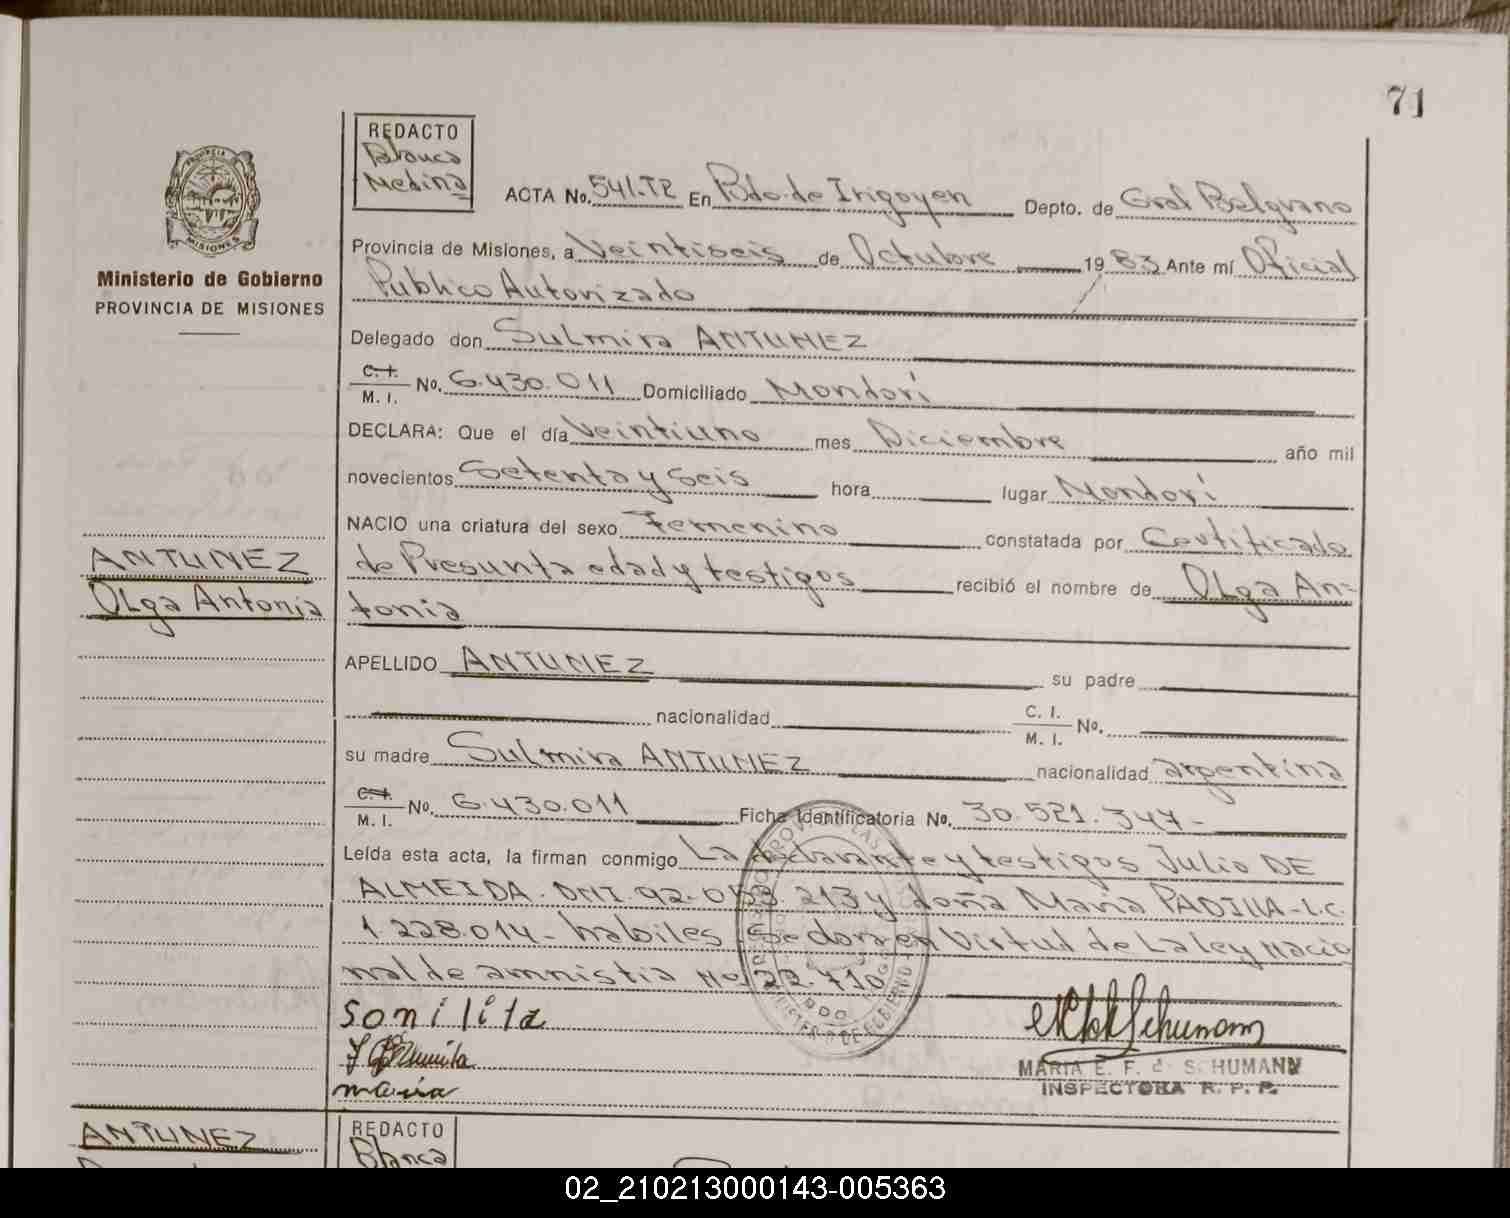 71
REDACTO
Blanca
Medina
PROVINCIA
MISIONES
Ministerio de Gobierno
PROVINCIA DE MISIONES
ACTA No. 541.T2 En Bdo. de Irigoyen Depto. de Gral Belgrano
Provincia de Misiones, a Veintiseis de Octubre 1983 Ante mí Oficial
Publico Autorizado
Delegado don Sulmira ANTUNEZ
C. I.
M. I. No. 6.430.011 Domiciliado Mondorí
DECLARA: Que el día Veintiuno mes Diciembre año mil
novecientos Setenta y Seis hora lugar Mondorí
NACIO una criatura del sexo Femenino constatada por Certificado
de Presunta edad y testigos recibió el nombre de OLga An-
tonia
ANTUNEZ
OLga Antonia
APELLIDO ANTUNEZ su padre
nacionalidad C. I.
M. I. No.
su madre Sulmira ANTUNEZ nacionalidad argentina
C. I.
M. I. No. 6.430.011 Ficha Identificatoria No. 30.521.347-
Leída esta acta, la firman conmigo La declarante y testigos Julio DE
ALMEIDA. DNI. 92.053.213 y doña Maria PADILLA-L.C.
1.228.014- habiles. Se dora en Virtud de La ley Nacio
nal de amnistia No 22.710
sonilita
maria
MARIA E. F. de SCHUMANN
INSPECTORA R. P. P.
ANTUNEZ
REDACTO
Blanca
02_210213000143-005363